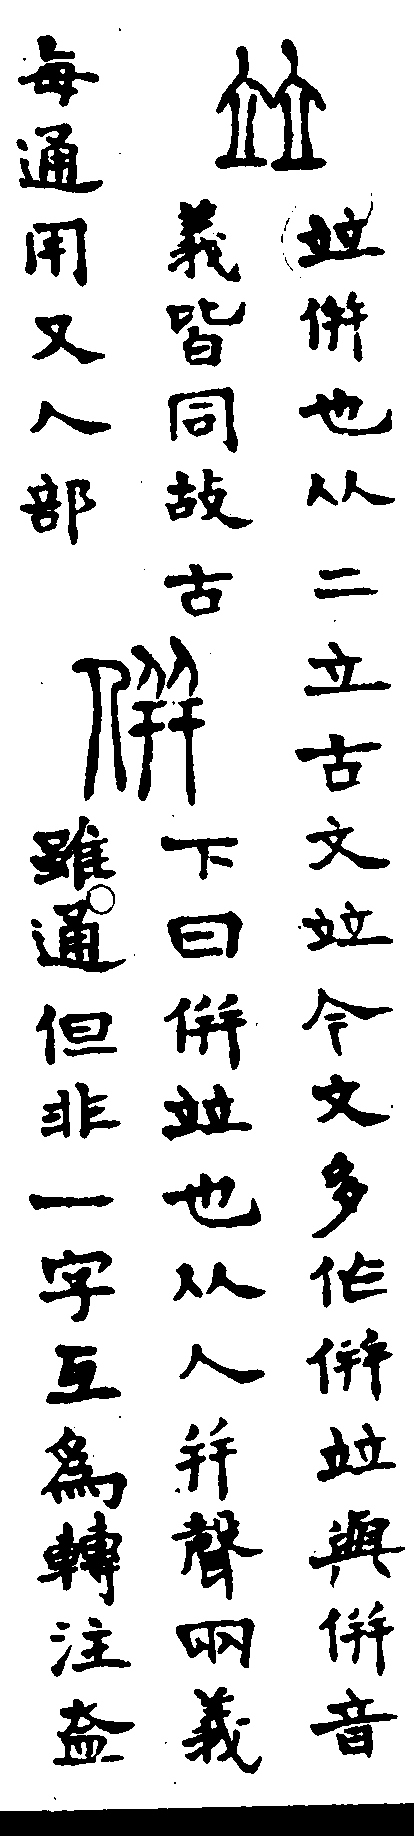 竝
竝倂也从二立古文竝今文多作倂竝與倂音
義皆同故古
每通用又人部
倂
下曰倂竝也从人幷聲兩義
雖通但非一字互爲轉注盇